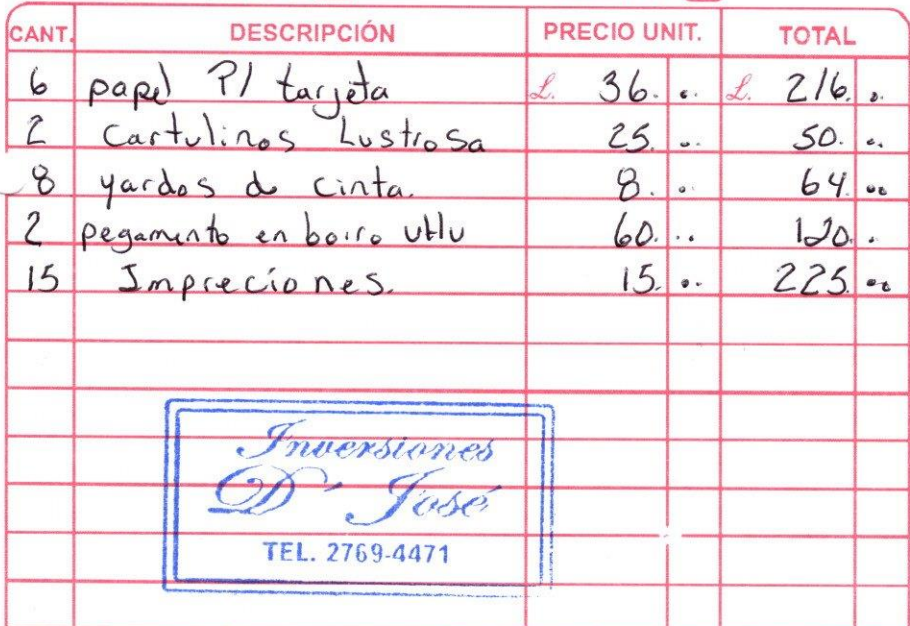 CANT. DESCRIPCIÓN PRECIO UNIT. TOTAL
6 papel P/ tarjeta L. 36. L. 216.
2 Cartulinas Lustrosa 25. 50.
8 yardas de cinta. 8. 64.
2 pegamento en barra 60. 120.
15 Impreciones. 15. 225.
Inversiones
D' José
TEL. 2769-4471